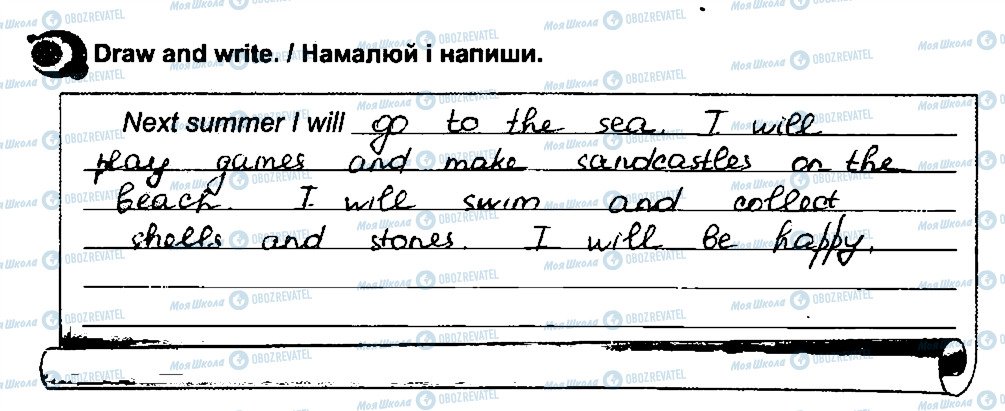 Draw and write. / Намалюй і напиши.
Next summer I will go to the sea. I will
play games and make sandcastles on the
beach. I will swim and collect
shells and stones. I will be happy.